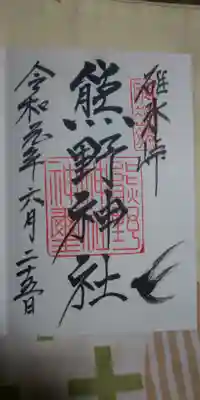 碓氷峠
熊野神社
令和元年六月二十五日